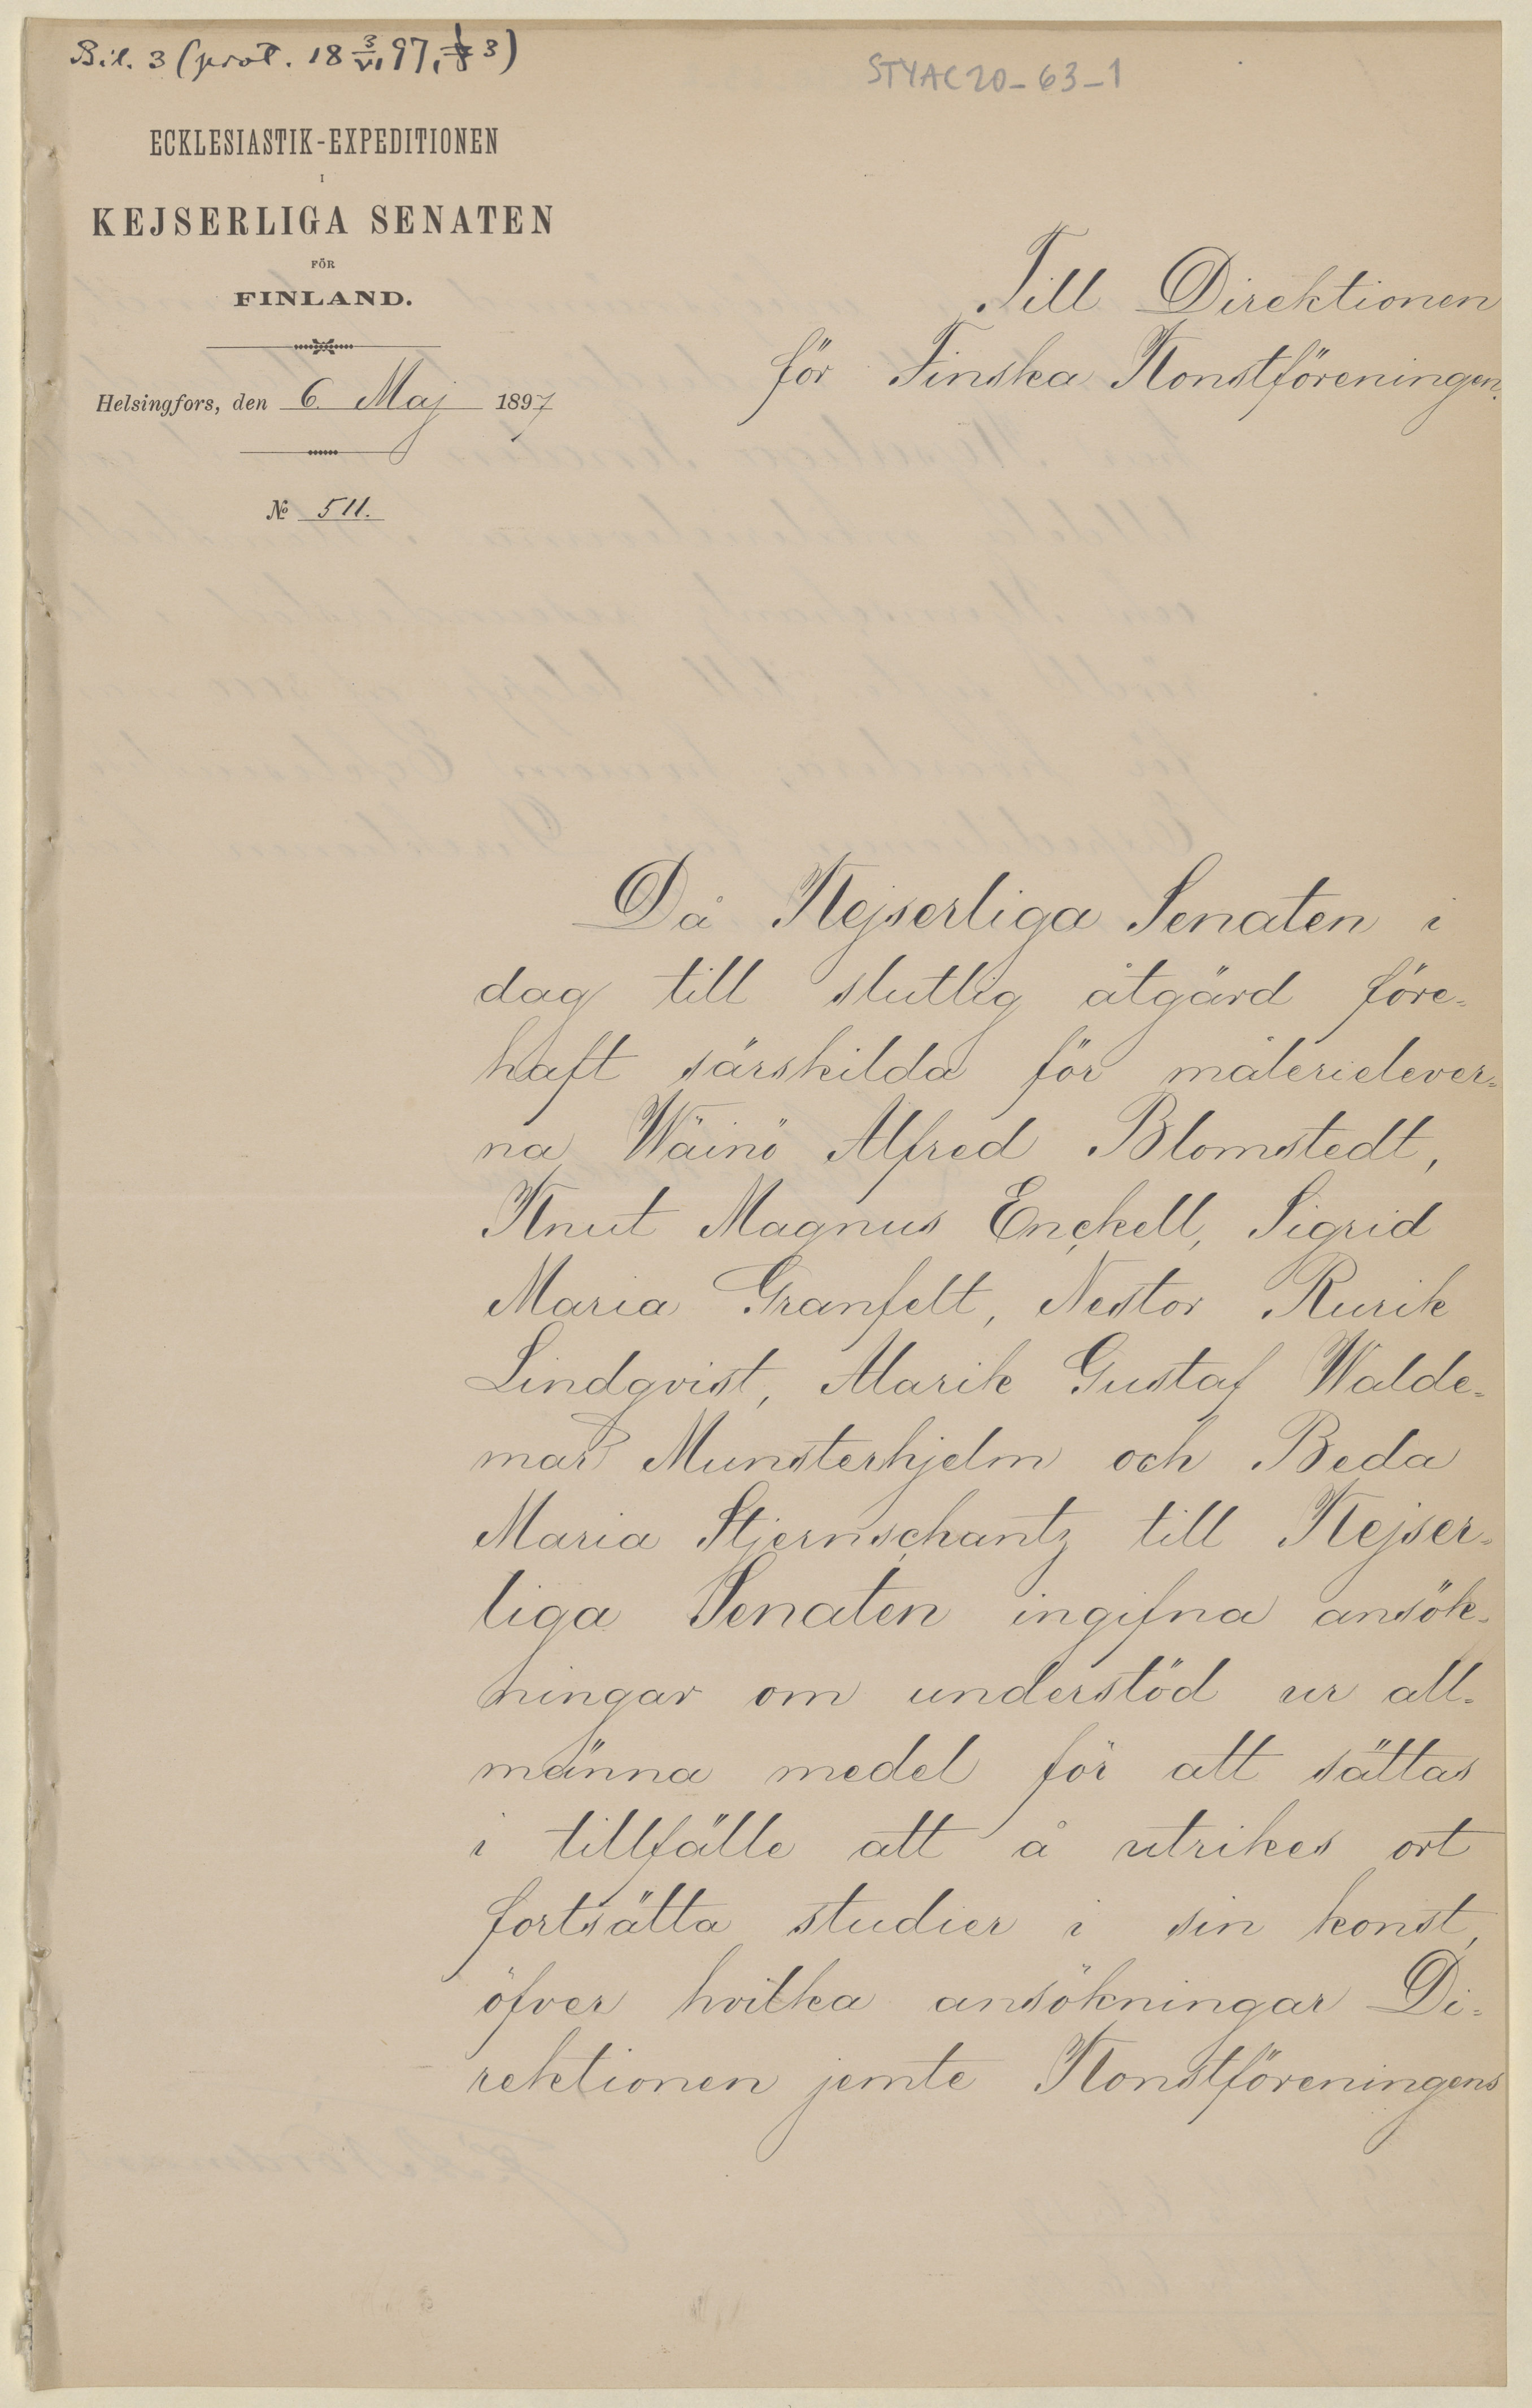 Bil. 3 (prot. 18 3/VI 97, § 3)
STYAC20-63-1
ECKLESIASTIK-EXPEDITIONEN
I
KEJSERLIGA SENATEN
FÖR
FINLAND.
Helsingfors, den 6. Maj 1897
№ 511.
Till Direktionen
för Finska Konstföreningen.
Då Kejserliga Senaten i
dag till slutlig åtgärd före-
haft särskilda för målerielever-
na Wäinö Alfred Blomstedt,
Knut Magnus Enckell, Sigrid
Maria Granfelt, Nestor Rurik
Lindqvist, Alarik Gustaf Walde-
mar Munsterhjelm och Beda
Maria Stjernschantz till Kejser-
liga Senaten ingifna ansök-
ningar om understöd ur all-
männa medel för att sättas
i tillfälle att å utrikes ort
fortsätta studier i sin konst,
öfver hvilka ansökningar Di-
rektionen jemte Konstföreningens